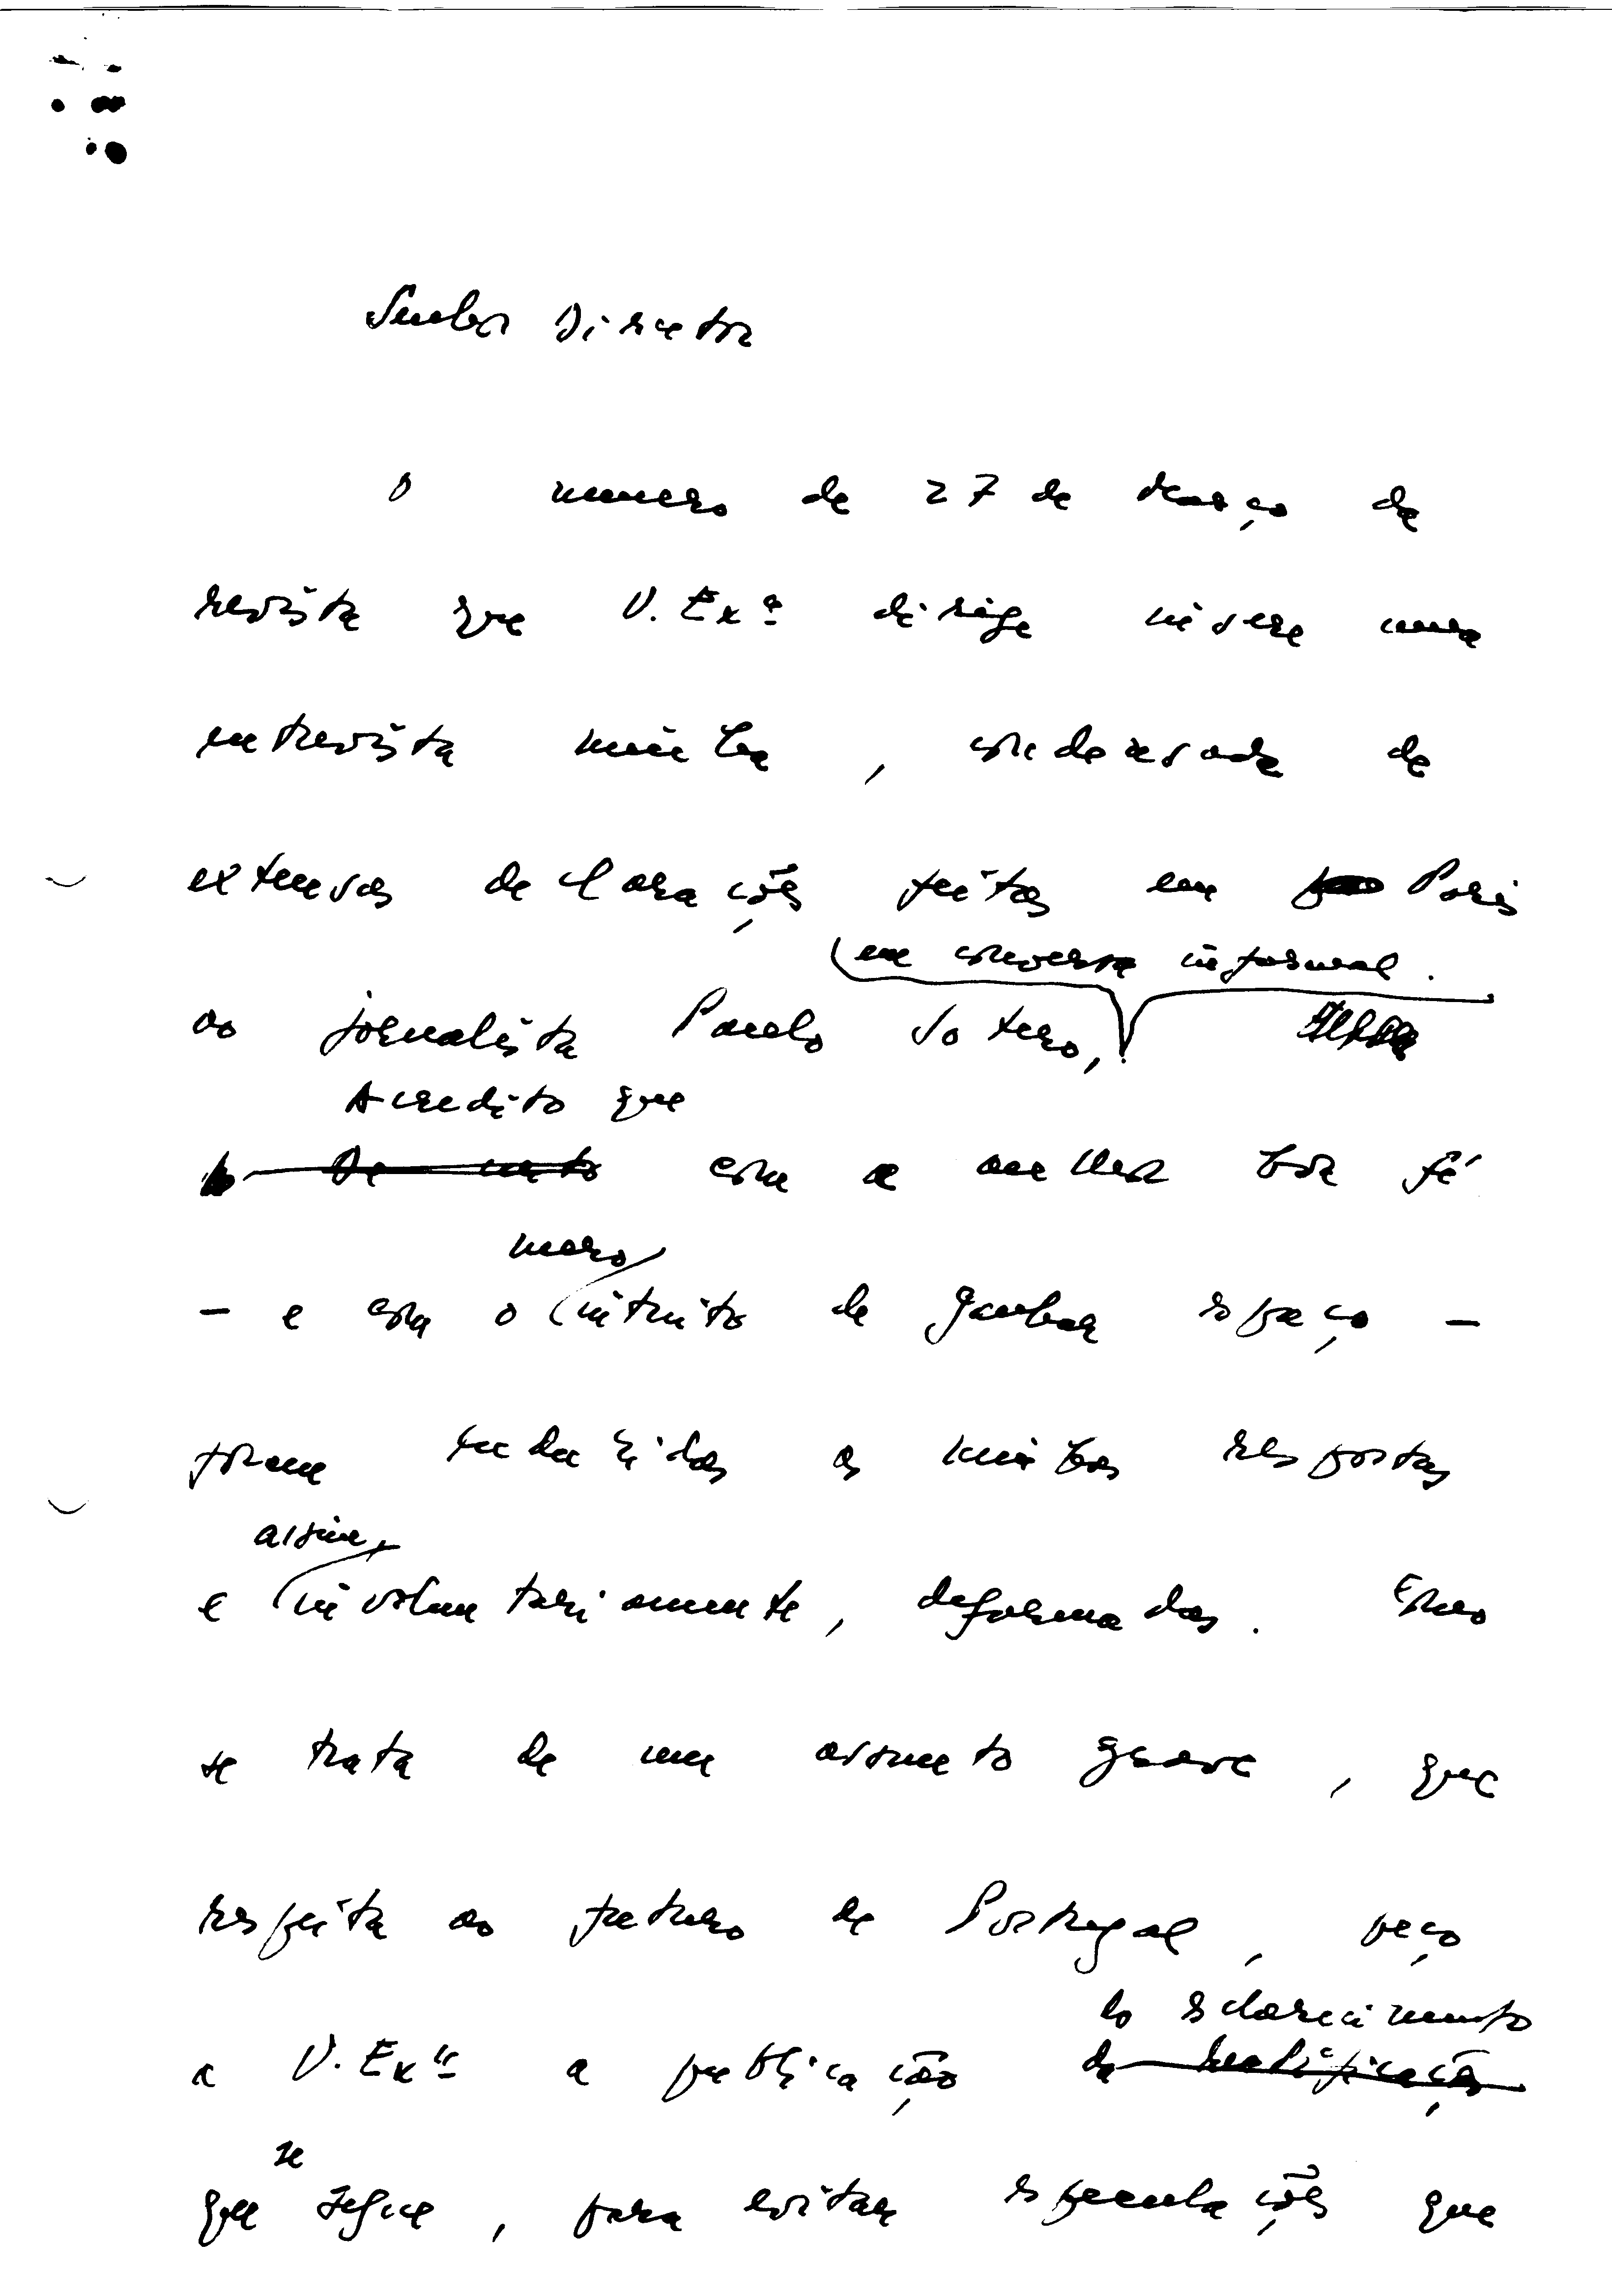 Senhor Director
O numero de 27 de Março da
revista que V. Exª dirige insere uma
entrevista minha, condensada de
extensas declarações feitas em Paris
em conversa informal.
ao jornalista Paulo Sotero,
Acredito que
com a melhor boa fé
mero
– e com o intuito de ganhar espaço –
foram reduzidas as minhas respostas
assim,
e involuntariamente, deformadas. Como
se trata de um assunto grave, que
respeita ao futuro de Portugal, peço
do esclarecimento
a V. Exª a publicação da rectificação
se
que segue, para evitar especulações que